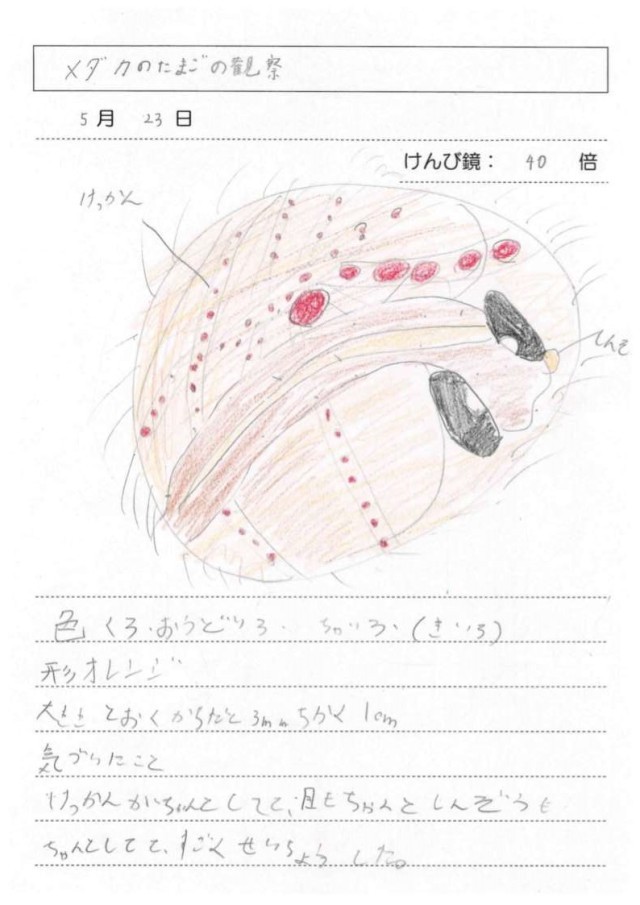 メダカのたまごの観察
5月 23日
けんび鏡： 40 倍
けっかん
しんぞ
色 くろ・おうどいろ・ ちゃいろ・(きいろ)
形オレンジ
大きさ とおくからだと 3mm ちかく 1cm
気づいたこと
けっかんがちゃんとしてて、目もちゃんとしんぞうも
ちゃんとしてて、すごくせいちょうした。